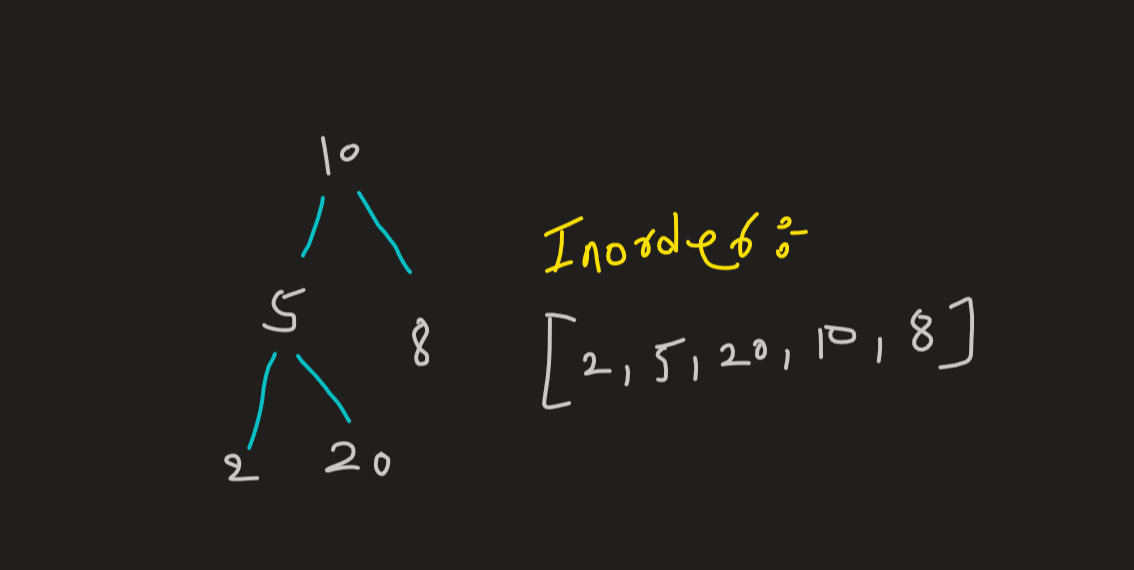 10
5
8
2 20
Inorder :-
[2, 5, 20, 10, 8]